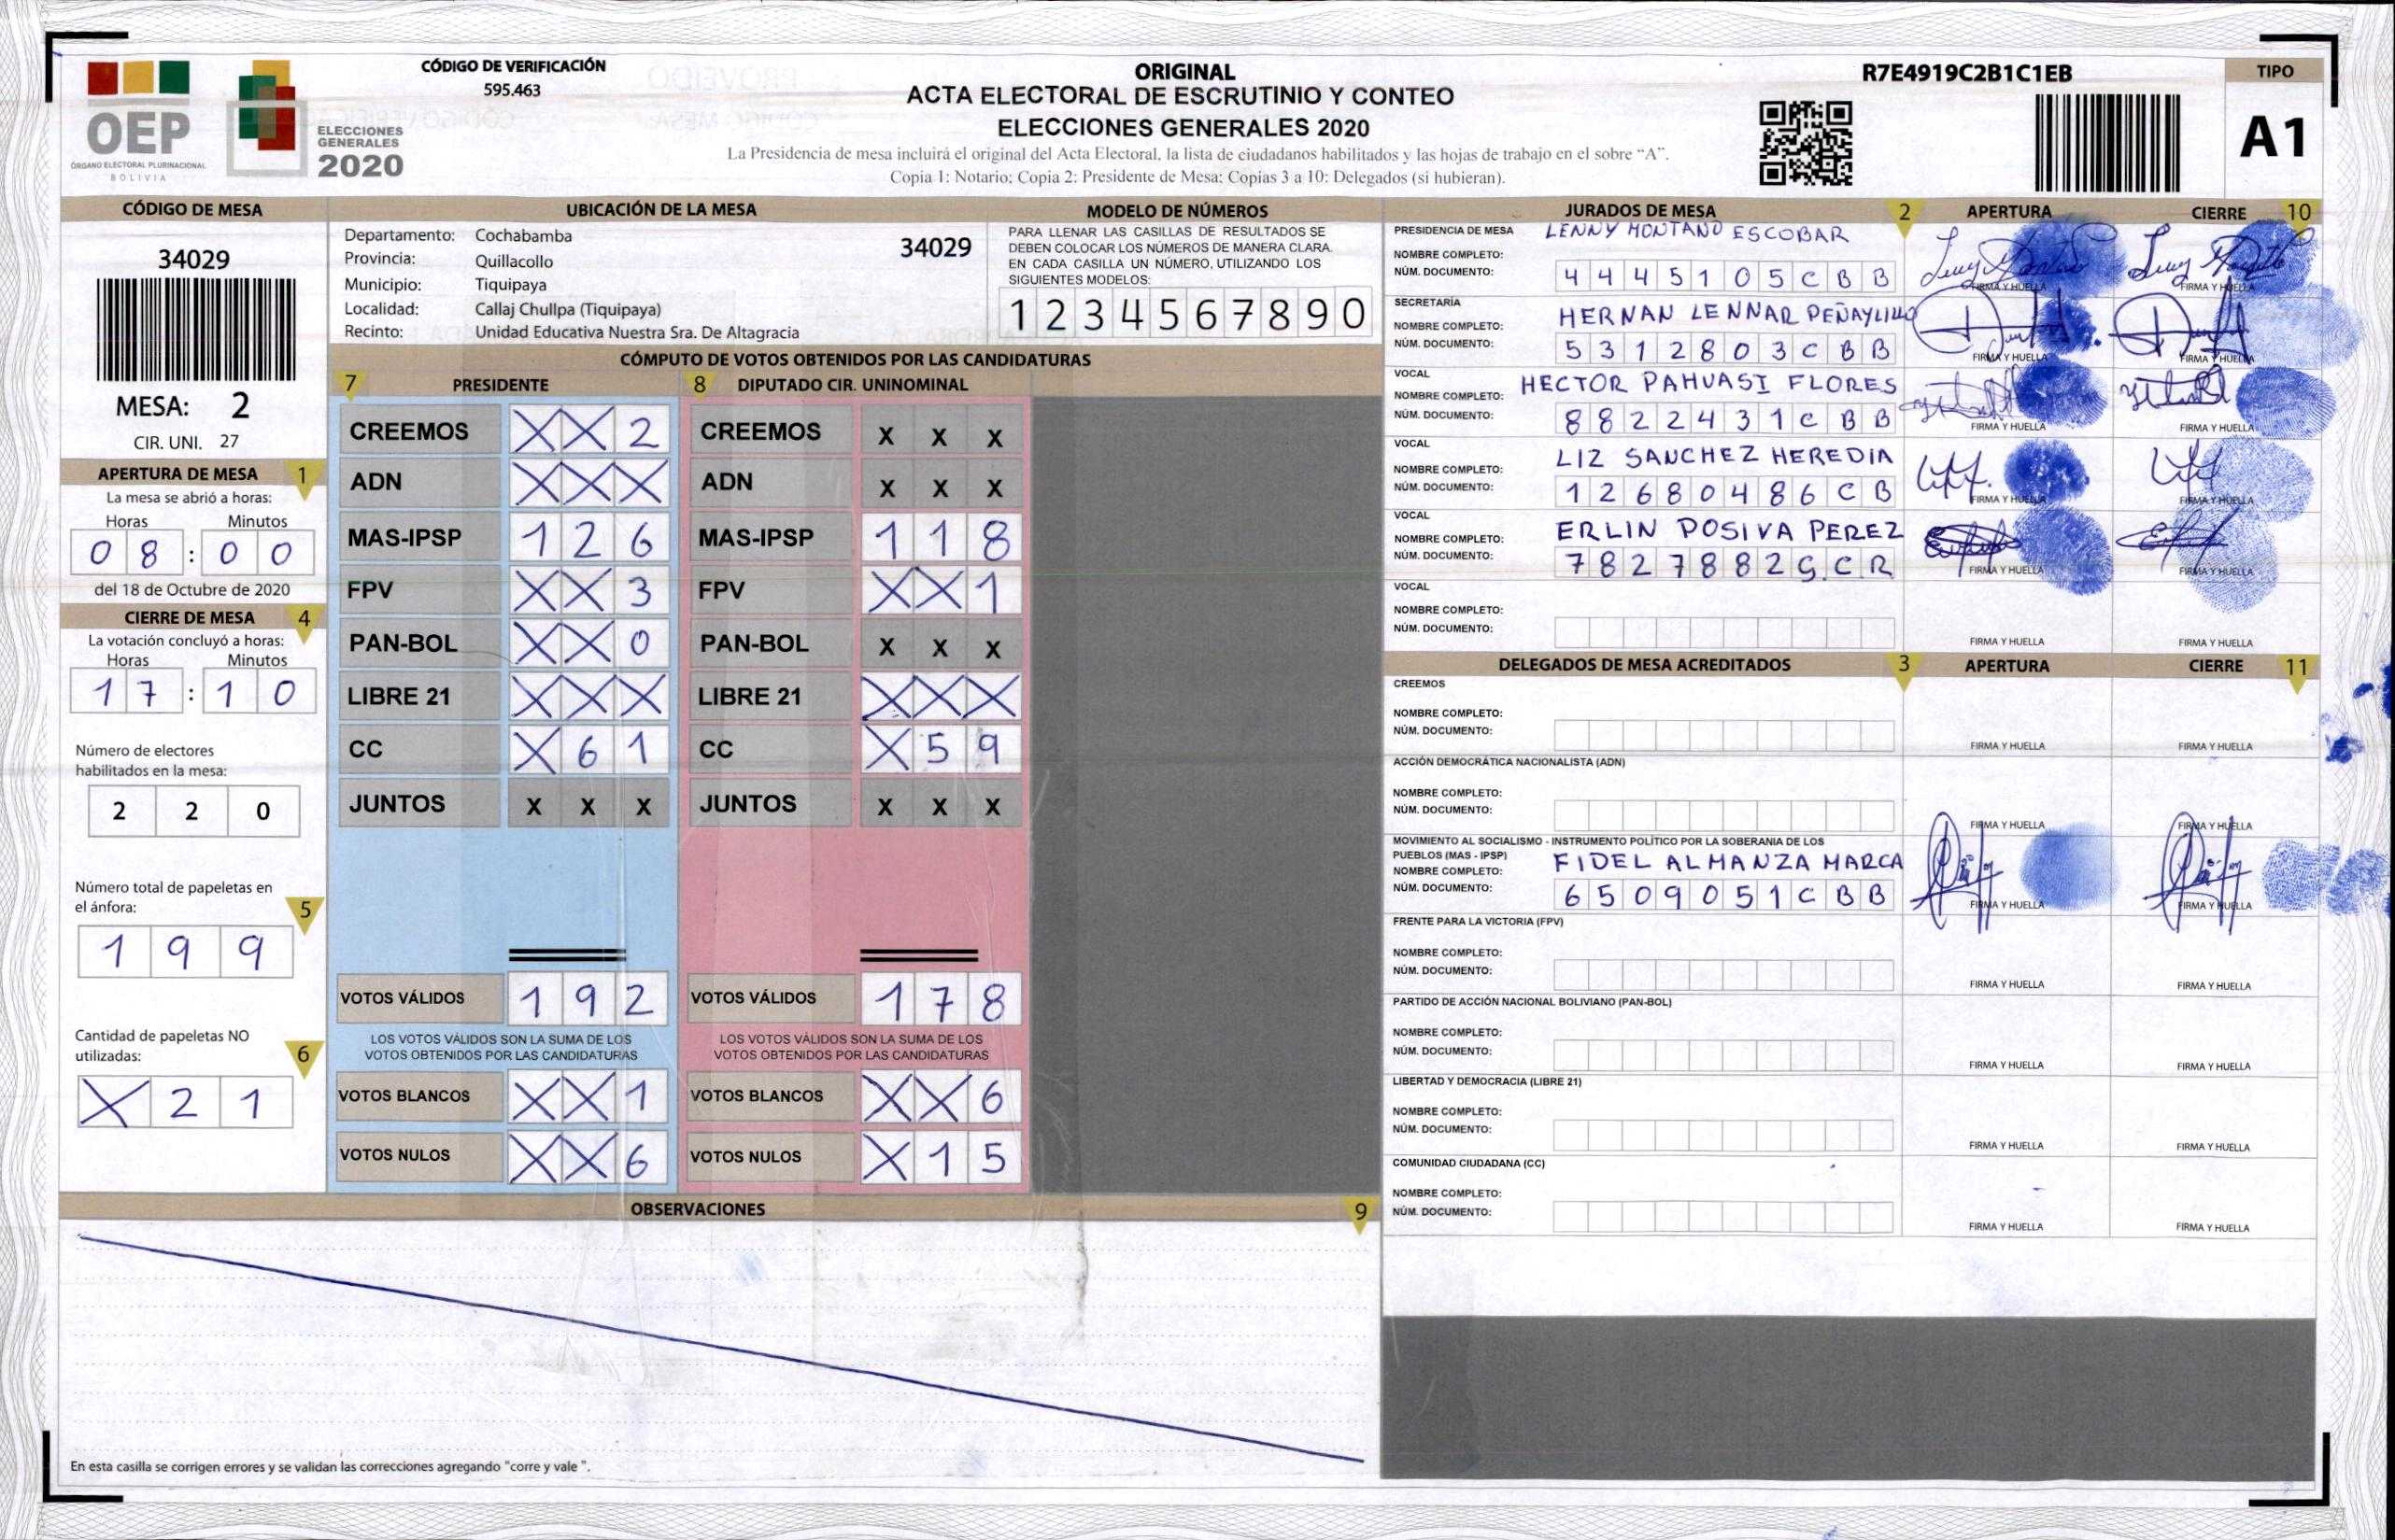 OEP
ÓRGANO ELECTORAL PLURINACIONAL
BOLIVIA
ELECCIONES
GENERALES
2020
CÓDIGO DE VERIFICACIÓN
595.463
ORIGINAL
ACTA ELECTORAL DE ESCRUTINIO Y CONTEO
ELECCIONES GENERALES 2020
La Presidencia de mesa incluirá el original del Acta Electoral, la lista de ciudadanos habilitados y las hojas de trabajo en el sobre “A”.
Copia 1: Notario; Copia 2: Presidente de Mesa; Copias 3 a 10: Delegados (si hubieran).
R7E4919C2B1C1EB
TIPO
A1
CÓDIGO DE MESA
34029
MESA: 2
CIR. UNI. 27
APERTURA DE MESA 1
La mesa se abrió a horas:
Horas Minutos
08:00
del 18 de Octubre de 2020
CIERRE DE MESA 4
La votación concluyó a horas:
Horas Minutos
17:10
Número de electores
habilitados en la mesa:
2 2 0
Número total de papeletas en
el ánfora: 5
1 9 9
Cantidad de papeletas NO
utilizadas: 6
X 2 1
UBICACIÓN DE LA MESA
Departamento: Cochabamba 34029
Provincia: Quillacollo
Municipio: Tiquipaya
Localidad: Callaj Chullpa (Tiquipaya)
Recinto: Unidad Educativa Nuestra Sra. De Altagracia
MODELO DE NÚMEROS
PARA LLENAR LAS CASILLAS DE RESULTADOS SE
DEBEN COLOCAR LOS NÚMEROS DE MANERA CLARA.
EN CADA CASILLA UN NÚMERO, UTILIZANDO LOS
SIGUIENTES MODELOS:
1 2 3 4 5 6 7 8 9 0
CÓMPUTO DE VOTOS OBTENIDOS POR LAS CANDIDATURAS
7 PRESIDENTE 8 DIPUTADO CIR. UNINOMINAL
CREEMOS X X 2 CREEMOS X X X
ADN X X X ADN X X X
MAS-IPSP 1 2 6 MAS-IPSP 1 1 8
FPV X X 3 FPV X X 1
PAN-BOL X X 0 PAN-BOL X X X
LIBRE 21 X X X LIBRE 21 X X X
CC X 6 1 CC X 5 9
JUNTOS X X X JUNTOS X X X
VOTOS VÁLIDOS 1 9 2 VOTOS VÁLIDOS 1 7 8
LOS VOTOS VÁLIDOS SON LA SUMA DE LOS LOS VOTOS VÁLIDOS SON LA SUMA DE LOS
VOTOS OBTENIDOS POR LAS CANDIDATURAS VOTOS OBTENIDOS POR LAS CANDIDATURAS
VOTOS BLANCOS X X 1 VOTOS BLANCOS X X 6
VOTOS NULOS X X 6 VOTOS NULOS X 1 5
OBSERVACIONES 9
En esta casilla se corrigen errores y se validan las correcciones agregando "corre y vale ".
JURADOS DE MESA 2 APERTURA CIERRE 10
PRESIDENCIA DE MESA LENNY MONTAÑO ESCOBAR
NOMBRE COMPLETO:
NÚM. DOCUMENTO: 4445105CBB FIRMA Y HUELLA FIRMA Y HUELLA
SECRETARÍA
NOMBRE COMPLETO: HERNAN LENNAR PEÑAYLILLO
NÚM. DOCUMENTO: 5312803CBB FIRMA Y HUELLA FIRMA Y HUELLA
VOCAL
NOMBRE COMPLETO: HECTOR PAHUASI FLORES
NÚM. DOCUMENTO: 8822431CBB FIRMA Y HUELLA FIRMA Y HUELLA
VOCAL
NOMBRE COMPLETO: LIZ SANCHEZ HEREDIA
NÚM. DOCUMENTO: 12680486CB FIRMA Y HUELLA FIRMA Y HUELLA
VOCAL
NOMBRE COMPLETO: ERLIN POSIVA PEREZ
NÚM. DOCUMENTO: 7827882S.CR FIRMA Y HUELLA FIRMA Y HUELLA
VOCAL
NOMBRE COMPLETO:
NÚM. DOCUMENTO: FIRMA Y HUELLA FIRMA Y HUELLA
DELEGADOS DE MESA ACREDITADOS 3 APERTURA CIERRE 11
CREEMOS
NOMBRE COMPLETO:
NÚM. DOCUMENTO: FIRMA Y HUELLA FIRMA Y HUELLA
ACCIÓN DEMOCRÁTICA NACIONALISTA (ADN)
NOMBRE COMPLETO:
NÚM. DOCUMENTO: FIRMA Y HUELLA FIRMA Y HUELLA
MOVIMIENTO AL SOCIALISMO - INSTRUMENTO POLÍTICO POR LA SOBERANIA DE LOS
PUEBLOS (MAS - IPSP)
NOMBRE COMPLETO: FIDEL ALMANZA MARCA
NÚM. DOCUMENTO: 6509051CBB FIRMA Y HUELLA FIRMA Y HUELLA
FRENTE PARA LA VICTORIA (FPV)
NOMBRE COMPLETO:
NÚM. DOCUMENTO: FIRMA Y HUELLA FIRMA Y HUELLA
PARTIDO DE ACCIÓN NACIONAL BOLIVIANO (PAN-BOL)
NOMBRE COMPLETO:
NÚM. DOCUMENTO: FIRMA Y HUELLA FIRMA Y HUELLA
LIBERTAD Y DEMOCRACIA (LIBRE 21)
NOMBRE COMPLETO:
NÚM. DOCUMENTO: FIRMA Y HUELLA FIRMA Y HUELLA
COMUNIDAD CIUDADANA (CC)
NOMBRE COMPLETO:
NÚM. DOCUMENTO: FIRMA Y HUELLA FIRMA Y HUELLA